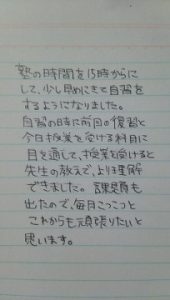 塾の時間を15時からに
して、少し早めにきて自習を
するようになりました。
自習の時に前回の復習と
今日授業を受ける科目に
目を通して、授業を受けると
先生の教えで、より理解
できました。課題も
出たので、毎日こつこつと
これからも頑張りたいと
思います。